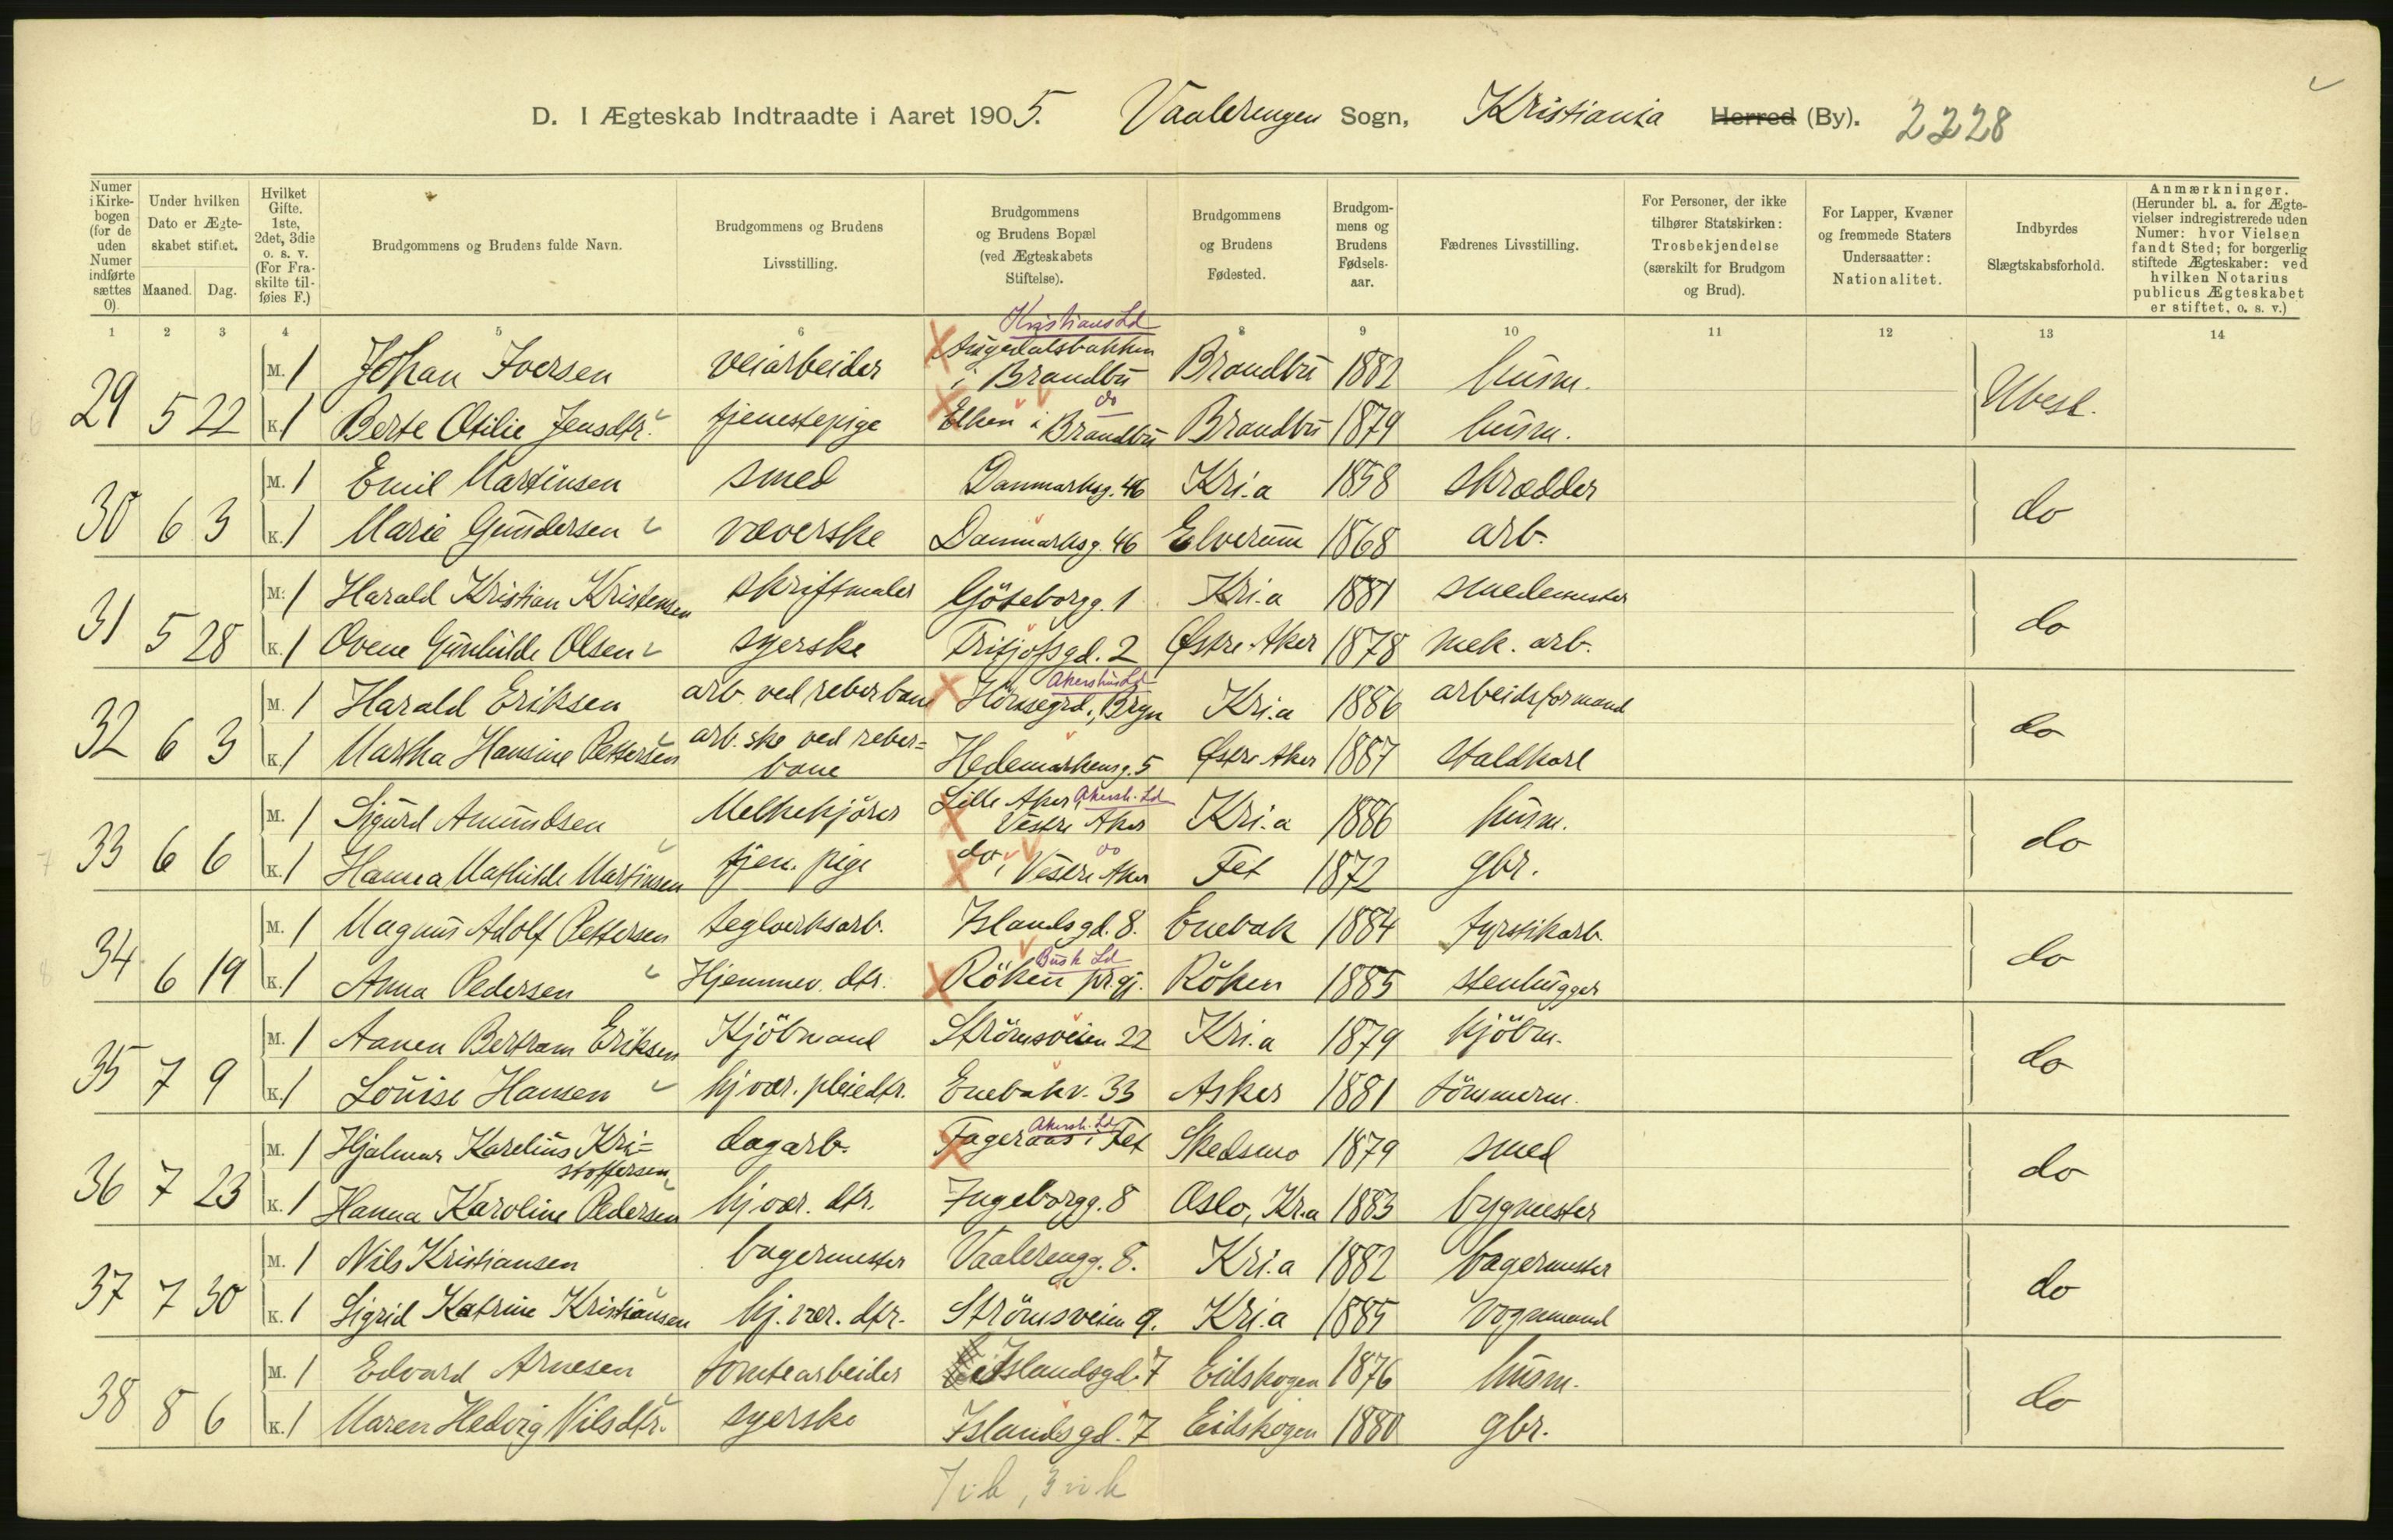 D. I Ægteskab Indtraadte i Aaret 1905. Vaalerengen Sogn, Kristiania Herred (By). 2228
Numer i Kirkebogen (for de uden Numer indførte sættes 0).
Under hvilken Dato er Ægteskabet stiftet.
Maaned. Dag.
Hvilket Gifte. 1ste, 2det, 3die o. s. v. (For Fraskilte tilføies F.)
Brudgommens og Brudens fulde Navn.
Brudgommens og Brudens Livsstilling.
Brudgommens og Brudens Bopæl (ved Ægteskabets Stiftelse).
Brudgommens og Brudens Fødested.
Brudgommens og Brudens Fødselsaar.
Fædrenes Livsstilling.
For Personer, der ikke tilhører Statskirken: Trosbekjendelse (særskilt for Brudgom og Brud).
For Lapper, Kvæner og fremmede Staters Undersaatter: Nationalitet.
Indbyrdes Slægtskabsforhold.
Anmærkninger. (Herunder bl. a. for Ægtevielser indregistrerede uden Numer: hvor Vielsen fandt Sted; for borgerlig stiftede Ægteskaber: ved hvilken Notarius publicus Ægteskabet er stiftet, o. s. v.)
1 2 3 4 5 6 8 9 10 11 12 13 14
Kristians Ld
29 5 22 M. 1 Johan Iversen veiarbeider i Brandbu Brandbu 1882 husm. Ubesl.
do
K. 1 Berte Otilie Jensdtr. tjenestepige i Brandbu Brandbu 1879 husm.
30 6 3 M. 1 Emil Martinsen smed Danmarksg. 46 Kri.a 1858 skrædder do
K. 1 Marie Gundersen væverske Danmarksg. 46 Elverum 1868 arb.
31 5 28 M. 1 Harald Kristian Kristensen skriftmaler Göteborgg. 1 Kri.a 1881 smedemester do
K. 1 Ovene Gunhilde Olsen syerske Fritjofsgd. 2 Østre Aker 1878 mek. arb.
Akershus Ld
32 6 3 M. 1 Harald Eriksen arb. ved reberbane Bryn Kri.a 1886 arbeidsformand do
K. 1 Martha Hansine Pettersen arb.ske ved reber=
bane Hedemarkensg. 5 Østre Aker 1887 staldkarl
33 6 6 M. 1 Sigurd Amundsen Melkekjører Lille Aker, Akersh. Ld
Vestre Aker Kri.a 1886 husm. do
do
K. 1 Hanna Mathilde Martinsen tjen. pige do, Vestre Aker Fet 1872 gbr.
34 6 19 M. 1 Magnus Adolf Pettersen teglverksarb. Islandsgd. 8. Enebak 1884 fyrstikarb. do
Busk Ld
K. 1 Anna Pedersen Hjemmev. dtr. Röken prgj. Röken 1885 stenhugger
35 7 9 M. 1 Aanen Bertram Eriksen Kjöbmand Strömsveien 22 Kri.a 1879 kjöbm. do
K. 1 Louise Hansen hjvær. pleiedtr. Enebakv. 33 Asker 1881 tömmerm.
Akersh. Ld
36 7 23 M. 1 Hjalmar Karelius Kri=
stoffersen dagarb. Fageraas i Fet Skedsmo 1879 smed do
K. 1 Hanna Karoline Pedersen hjvær. dtr. Ingeborgg. 8 Oslo, Kr.a 1883 bygmester
37 7 30 M. 1 Nils Kristiansen bagermester Vaalerengg. 8. Kri.a 1882 bagermester do
K. 1 Sigrid Katrine Kristiansen hj. vær. dtr. Strömsveien 9. Kri.a 1885 vognmand
38 8 6 M. 1 Edvard Arnesen tomtearbeider Islandsgd. 7 Eidskogen 1876 husm. do
K. 1 Maren Hedvig Nilsdtr. syerske Islandsgd. 7 Eidskogen 1880 gbr.